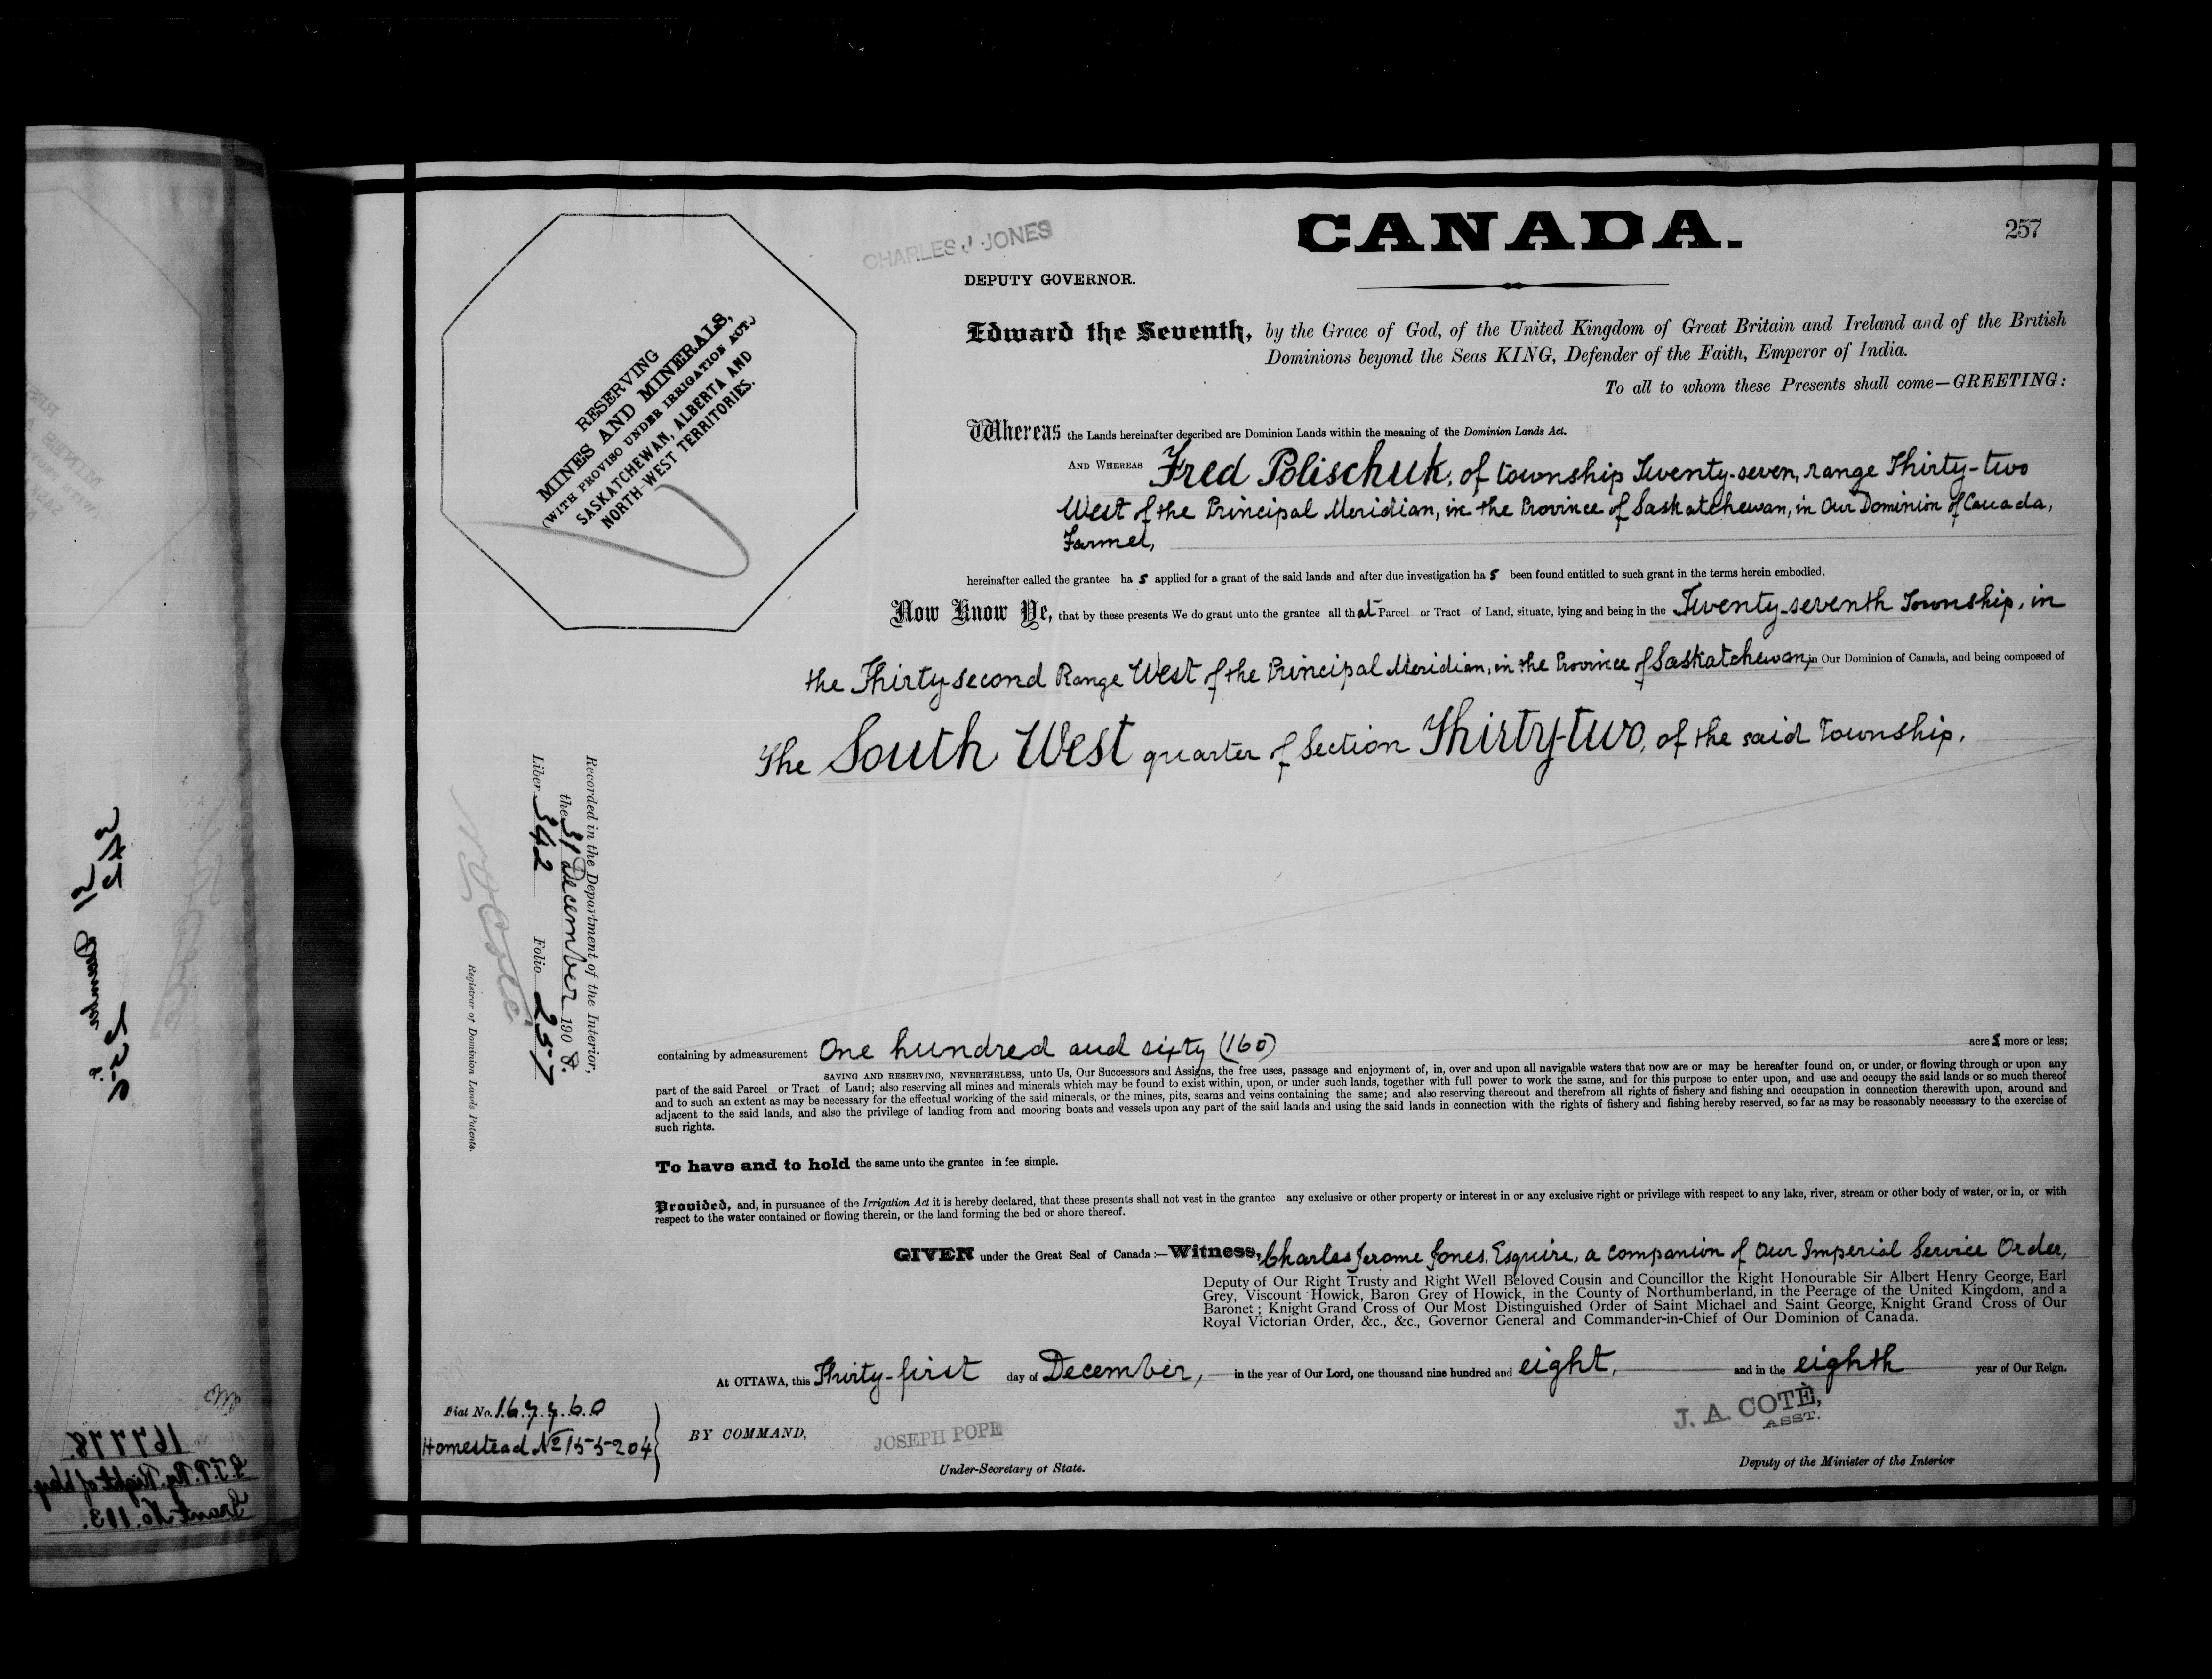 257
CHARLES J. JONES
CANADA.
DEPUTY GOVERNOR.
Edward the Seventh, by the Grace of God, of the United Kingdom of Great Britain and Ireland and of the British
Dominions beyond the Seas KING, Defender of the Faith, Emperor of India.
To all to whom these Presents shall come—GREETING:
RESERVING
MINES AND MINERALS,
(WITH PROVISO UNDER IRRIGATION ACT.)
SASKATCHEWAN, ALBERTA AND
NORTH-WEST TERRITORIES.
Whereas the Lands hereinafter described are Dominion Lands within the meaning of the Dominion Lands Act.
AND WHEREAS Fred Polischuk, of township Twenty-seven, range Thirty-two
West of the Principal Meridian, in the Province of Saskatchewan, in Our Dominion of Canada,
Farmer,
hereinafter called the grantee has applied for a grant of the said lands and after due investigation has been found entitled to such grant in the terms herein embodied.
Now Know Ye, that by these presents We do grant unto the grantee all that Parcel or Tract of Land, situate, lying and being in the Twenty-seventh Township, in
the Thirty second Range West of the Principal Meridian, in the Province of Saskatchewan, in Our Dominion of Canada, and being composed of
The South West quarter of Section Thirty-two, of the said Township.
Recorded in the Department of the Interior,
the 31 December 1908.
Liber 342 Folio 257
N O Coté
Registrar of Dominion Lands Patents.
containing by admeasurement One hundred and sixty (160) acres more or less;
SAVING AND RESERVING, NEVERTHELESS, unto Us, Our Successors and Assigns, the free uses, passage and enjoyment of, in, over and upon all navigable waters that now are or may be hereafter found on, or under, or flowing through or upon any
part of the said Parcel or Tract of Land; also reserving all mines and minerals which may be found to exist within, upon, or under such lands, together with full power to work the same, and for this purpose to enter upon, and use and occupy the said lands or so much thereof
and to such an extent as may be necessary for the effectual working of the said minerals, or the mines, pits, seams and veins containing the same; and also reserving thereout and therefrom all rights of fishery and fishing and occupation in connection therewith upon, around and
adjacent to the said lands, and also the privilege of landing from and mooring boats and vessels upon any part of the said lands and using the said lands in connection with the rights of fishery and fishing hereby reserved, so far as may be reasonably necessary to the exercise of
such rights.
To have and to hold the same unto the grantee in fee simple.
Provided, and, in pursuance of the Irrigation Act it is hereby declared, that these presents shall not vest in the grantee any exclusive or other property or interest in or any exclusive right or privilege with respect to any lake, river, stream or other body of water, or in, or with
respect to the water contained or flowing therein, or the land forming the bed or shore thereof.
GIVEN under the Great Seal of Canada:—Witness, Charles Jerome Jones, Esquire, a companion of Our Imperial Service Order,
Deputy of Our Right Trusty and Right Well Beloved Cousin and Councillor the Right Honourable Sir Albert Henry George, Earl
Grey, Viscount Howick, Baron Grey of Howick, in the County of Northumberland, in the Peerage of the United Kingdom, and a
Baronet; Knight Grand Cross of Our Most Distinguished Order of Saint Michael and Saint George, Knight Grand Cross of Our
Royal Victorian Order, &c., &c., Governor General and Commander-in-Chief of Our Dominion of Canada.
At OTTAWA, this Thirty-first day of December, in the year of Our Lord, one thousand nine hundred and eight, and in the eighth year of Our Reign.
Fiat No. 167760
Homestead No 155204
BY COMMAND,
JOSEPH POPE
Under-Secretary of State.
J. A. COTÈ,
ASST.
Deputy of the Minister of the Interior
167778.
G.T.P. Ry. Right of Way.
Grant No. 113.